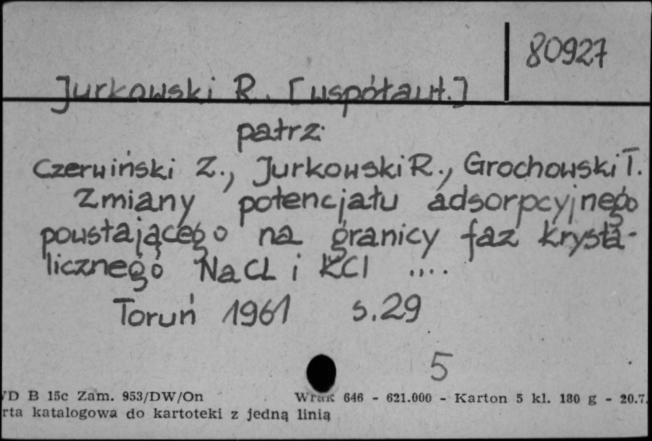 80927
Jurkowski R. [współaut.]
patrz:
Czerwiński Z., Jurkowski R., Grochowski T.
Zmiany potencjału adsorpcyjnego
powstającego na granicy faz krysta-
licznego NaCl i KCl ....
Toruń 1961 s.29
5
WD B 15c Zam. 953/DW/On Wrak 646 - 621.000 - Karton 5 kl. 180 g - 20.7.
rta katalogowa do kartoteki z jedną linią